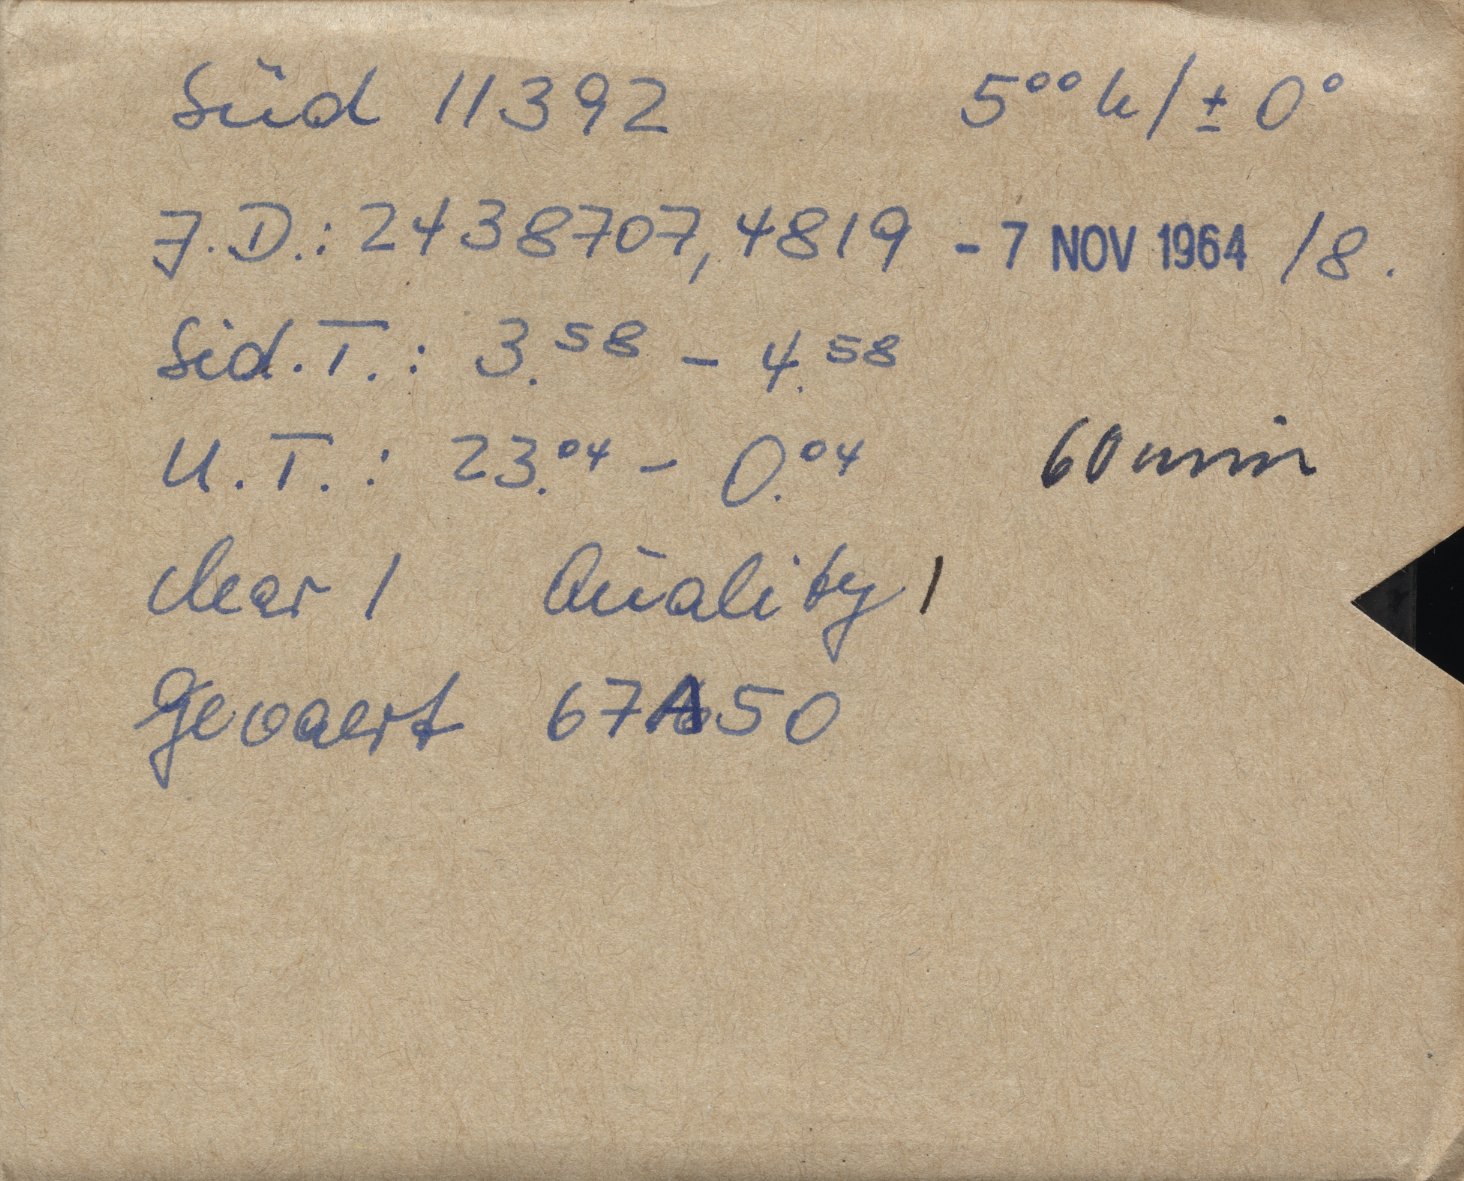 Süd 11392 5⁰⁰ h / ± 0°
J.D.: 2438707,4819 - 7 NOV 1964 /8.
Sid.T.: 3.⁵⁸ - 4.⁵⁸
U.T.: 23.⁰⁴ - 0.⁰⁴ 60 min
clear 1 Quality 1
Gevaert 67A50